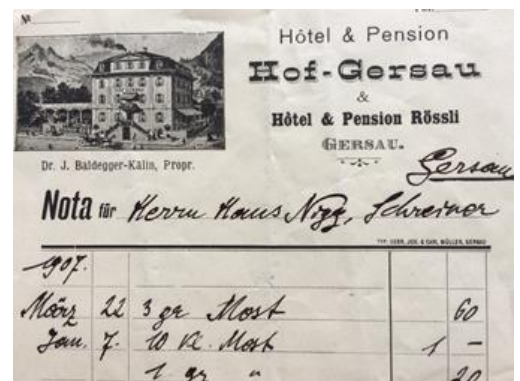 №
Hôtel & Pension
Hof-Gersau
&
Hôtel & Pension Rössli
GERSAU.
Dr. J. Baldegger-Kälin, Propr.
Gersau
Nota für Herrn Hans Nigg, Schreiner
TYP. GEBR. JOS. & CARL MÜLLER, GERSAU
1907.
März 22 3 gr Most 60
Jan. 7. 10 Kl. Most 1 —
1 gr " 20